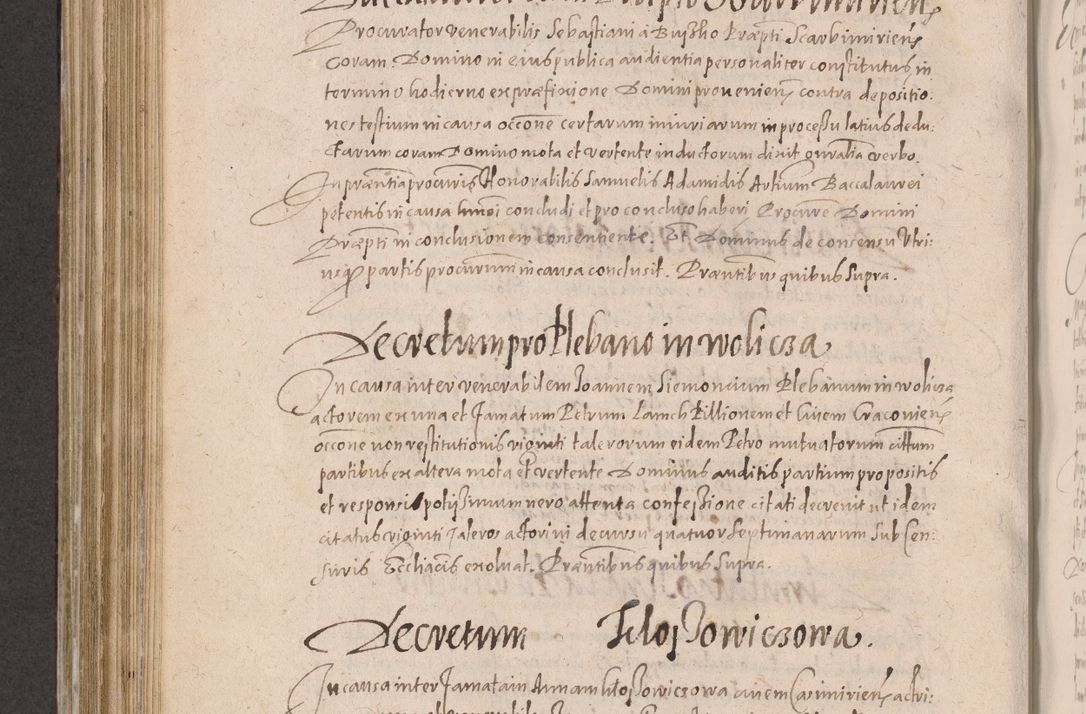 Procurator venerabilis Sebastiani a Buisko Præpti Scarbimirien
Coram Domino in eius publica audientia personaliter constitutus in
termino hodierno ex præfixione Domini provenien contra depositio-
nes testium in causa occone certarum iniuriarum in processu latius dedu-
ctarum coram Domino mota et vertente inductorum dixit gnralia verbo.
In præntia procuris Honorabilis Samuelis Adamidis Artium Baccalaurei
petentis in causa hmoi concludi et pro concluso haberi Procure Domini
Præpti in conclusionem consentiente. Et Dominus de consensu Utri-
usq partis procurum in causa conclusit. Præntibus quibus supra.
Decretum pro Plebano in wolicza
In causa inter venerabilem Joannem Siemoncium Plebanum in wolicza
actorem ex una et famatum Petrum Lamch Pillionem et Civem Cracovien
occone non restitutionis viginti talerorum eidem Petro mutuatorum cittum
partibus ex altera mota et vertente Dominus auditis partium propositis
et responsis potissimum vero attenta confessione citati decrevit ut idem
citatus viginti taleros actori in decursu quatuor Septimanarum sub Cen-
suris Eccliacis exolvat. Præntibus quibus supra.
Decretum Filossowiczowa.
In causa inter famatam Annam filossowiczowa civem Casimirien actri-